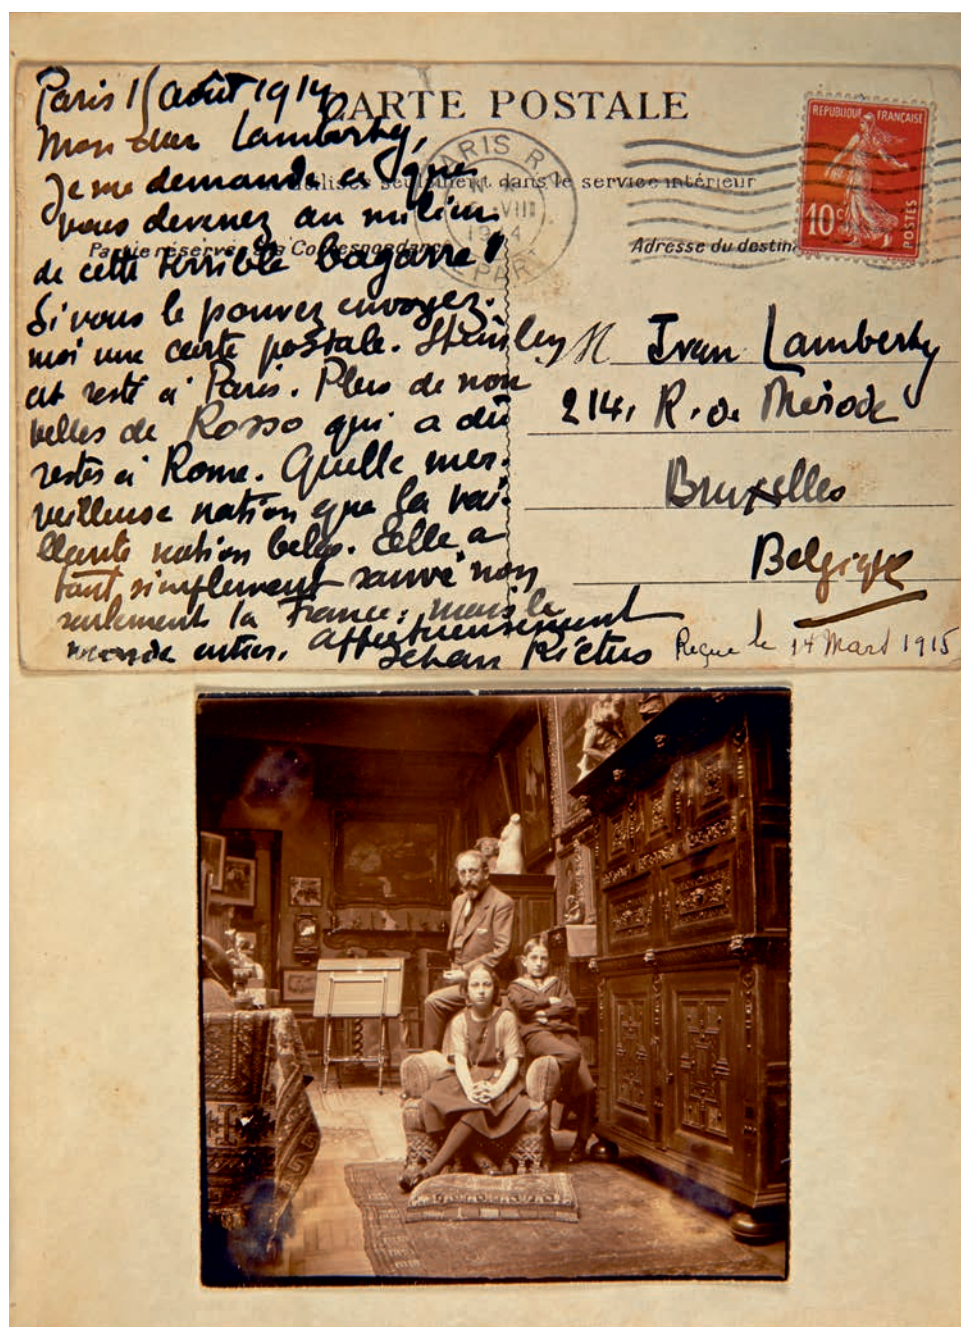 CARTE POSTALE
Utiliser seulement dans le service intérieur
Partie réservée à la Correspondance
Adresse du destin
REPUBLIQUE FRANÇAISE
10c
POSTES
PARIS R
VIII
DEPART
Paris 15 août 1914
Mon cher Lamberty,
Je me demande ce que
vous devenez au milieu
de cette terrible bagarre!
Si vous le pouvez envoyez-
moi une carte postale. Stanley
est resté à Paris. Plus de nou
velles de Rosso qui a dû
rester à Rome. Quelle mer-
veilleuse nation que la vai-
llante nation belge. Elle a
tout simplement sauvé non
seulement la France; mais le
monde entier. Affectueusement
Jehan Rictus
M Ivan Lamberty
214, R. de Mérode
Bruxelles
Belgique
Reçue le 14 Mars 1915